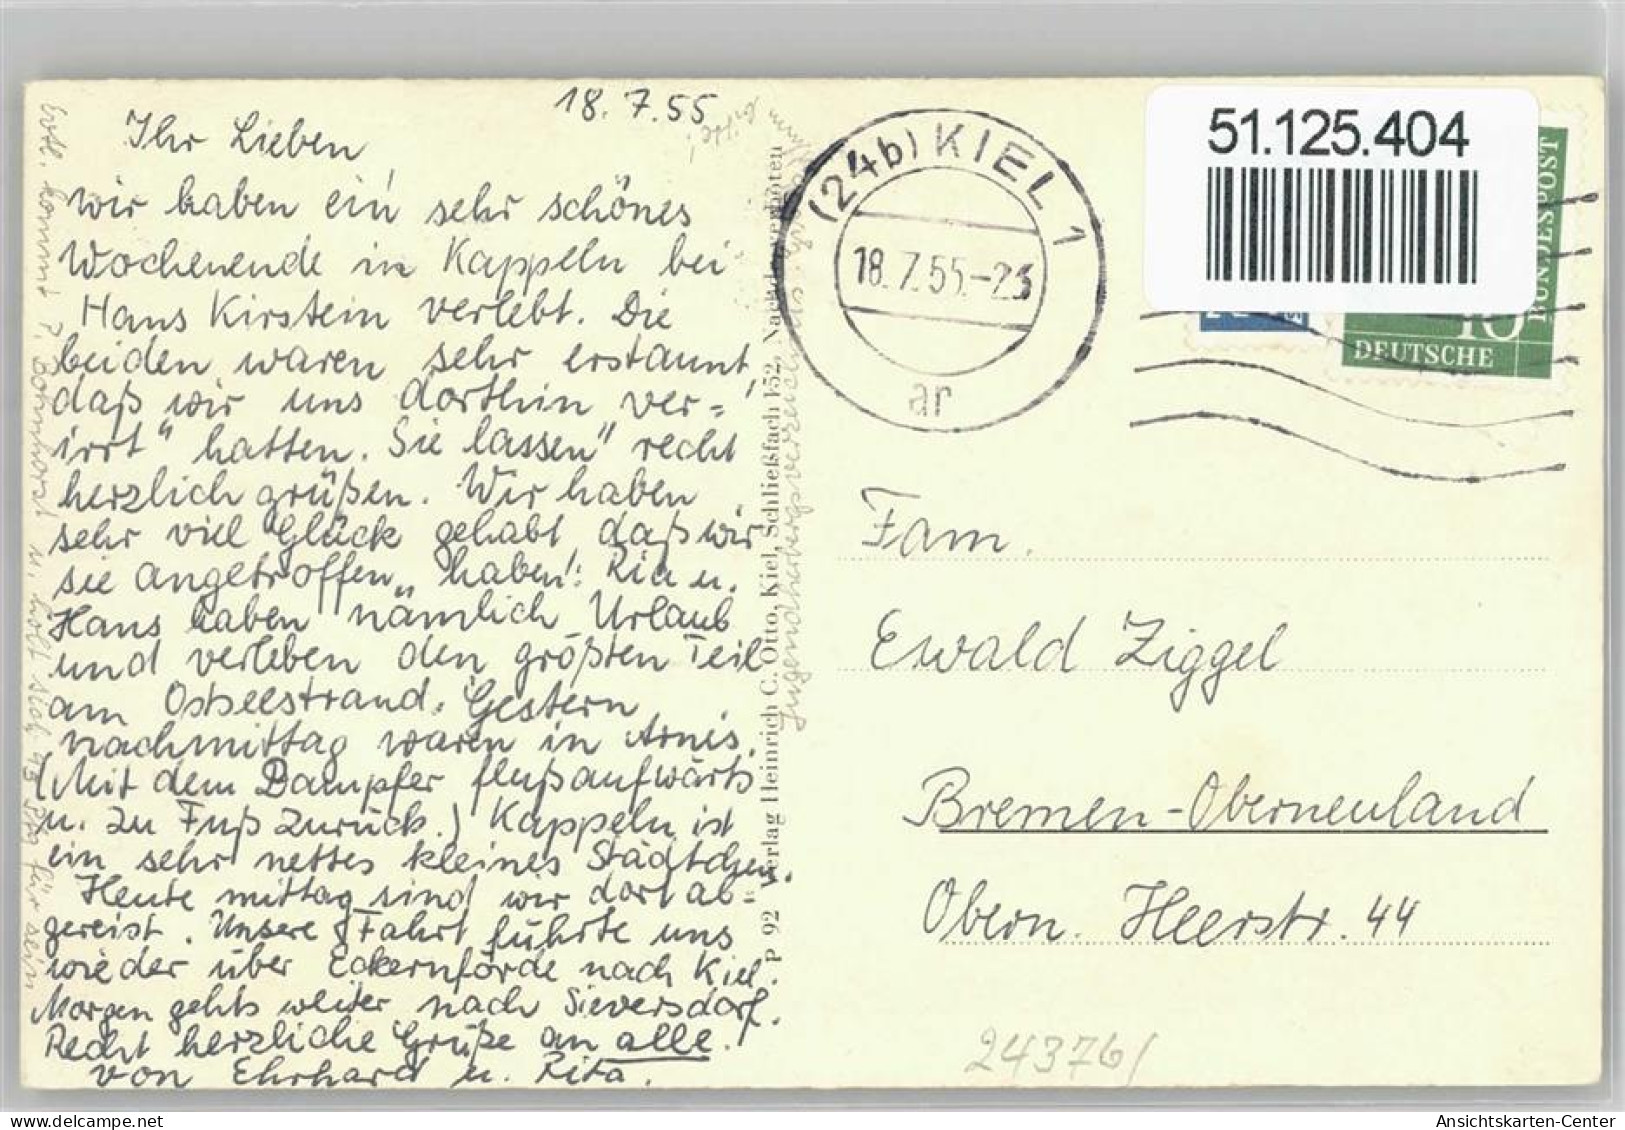 18.7.55
Ihr Lieben,
wir haben ein sehr schönes
Wochenende in Kappeln bei
Hans Kirstein verlebt. Die
beiden waren sehr erstaunt,
daß wir uns dorthin „ver-
irrt" hatten. Sie lassen recht
herzlich grüßen. Wir haben
sehr viel Glück gehabt daß wir
sie angetroffen haben: Ria u.
Hans haben nämlich Urlaub
und verleben den größten Teil
am Ostseestrand. Gestern
nachmittag waren in Arnis.
(Mit dem Dampfer flußaufwärts
u. zu Fuß zurück.) Kappeln ist
ein sehr nettes kleines Städtchen.
Heute mittag sind wir dort ab-
gereist. Unsere Fahrt führte uns
wieder über Eckernförde nach Kiel.
Morgen gehts weiter nach Sieversdorf.
Recht herzliche Grüße an alle.
von Ehrhard u. Rita.
Evtl. kommt P. Bornhorst u. holt sich 43 Pfg für sein
Jugendherbergsverzeichnis
bitte!
P 92 Verlag Heinrich C. Otto, Kiel, Schließfach 152. Nachdr. verboten
(24b) KIEL 1
18.7.55.-23
ar
51.125.404
DEUTSCHE
BUNDESPOST
10
Fam.
Ewald Ziggel
Bremen-Oberneuland
Obern. Heerstr. 44
24376/
Ansichtskarten-Center